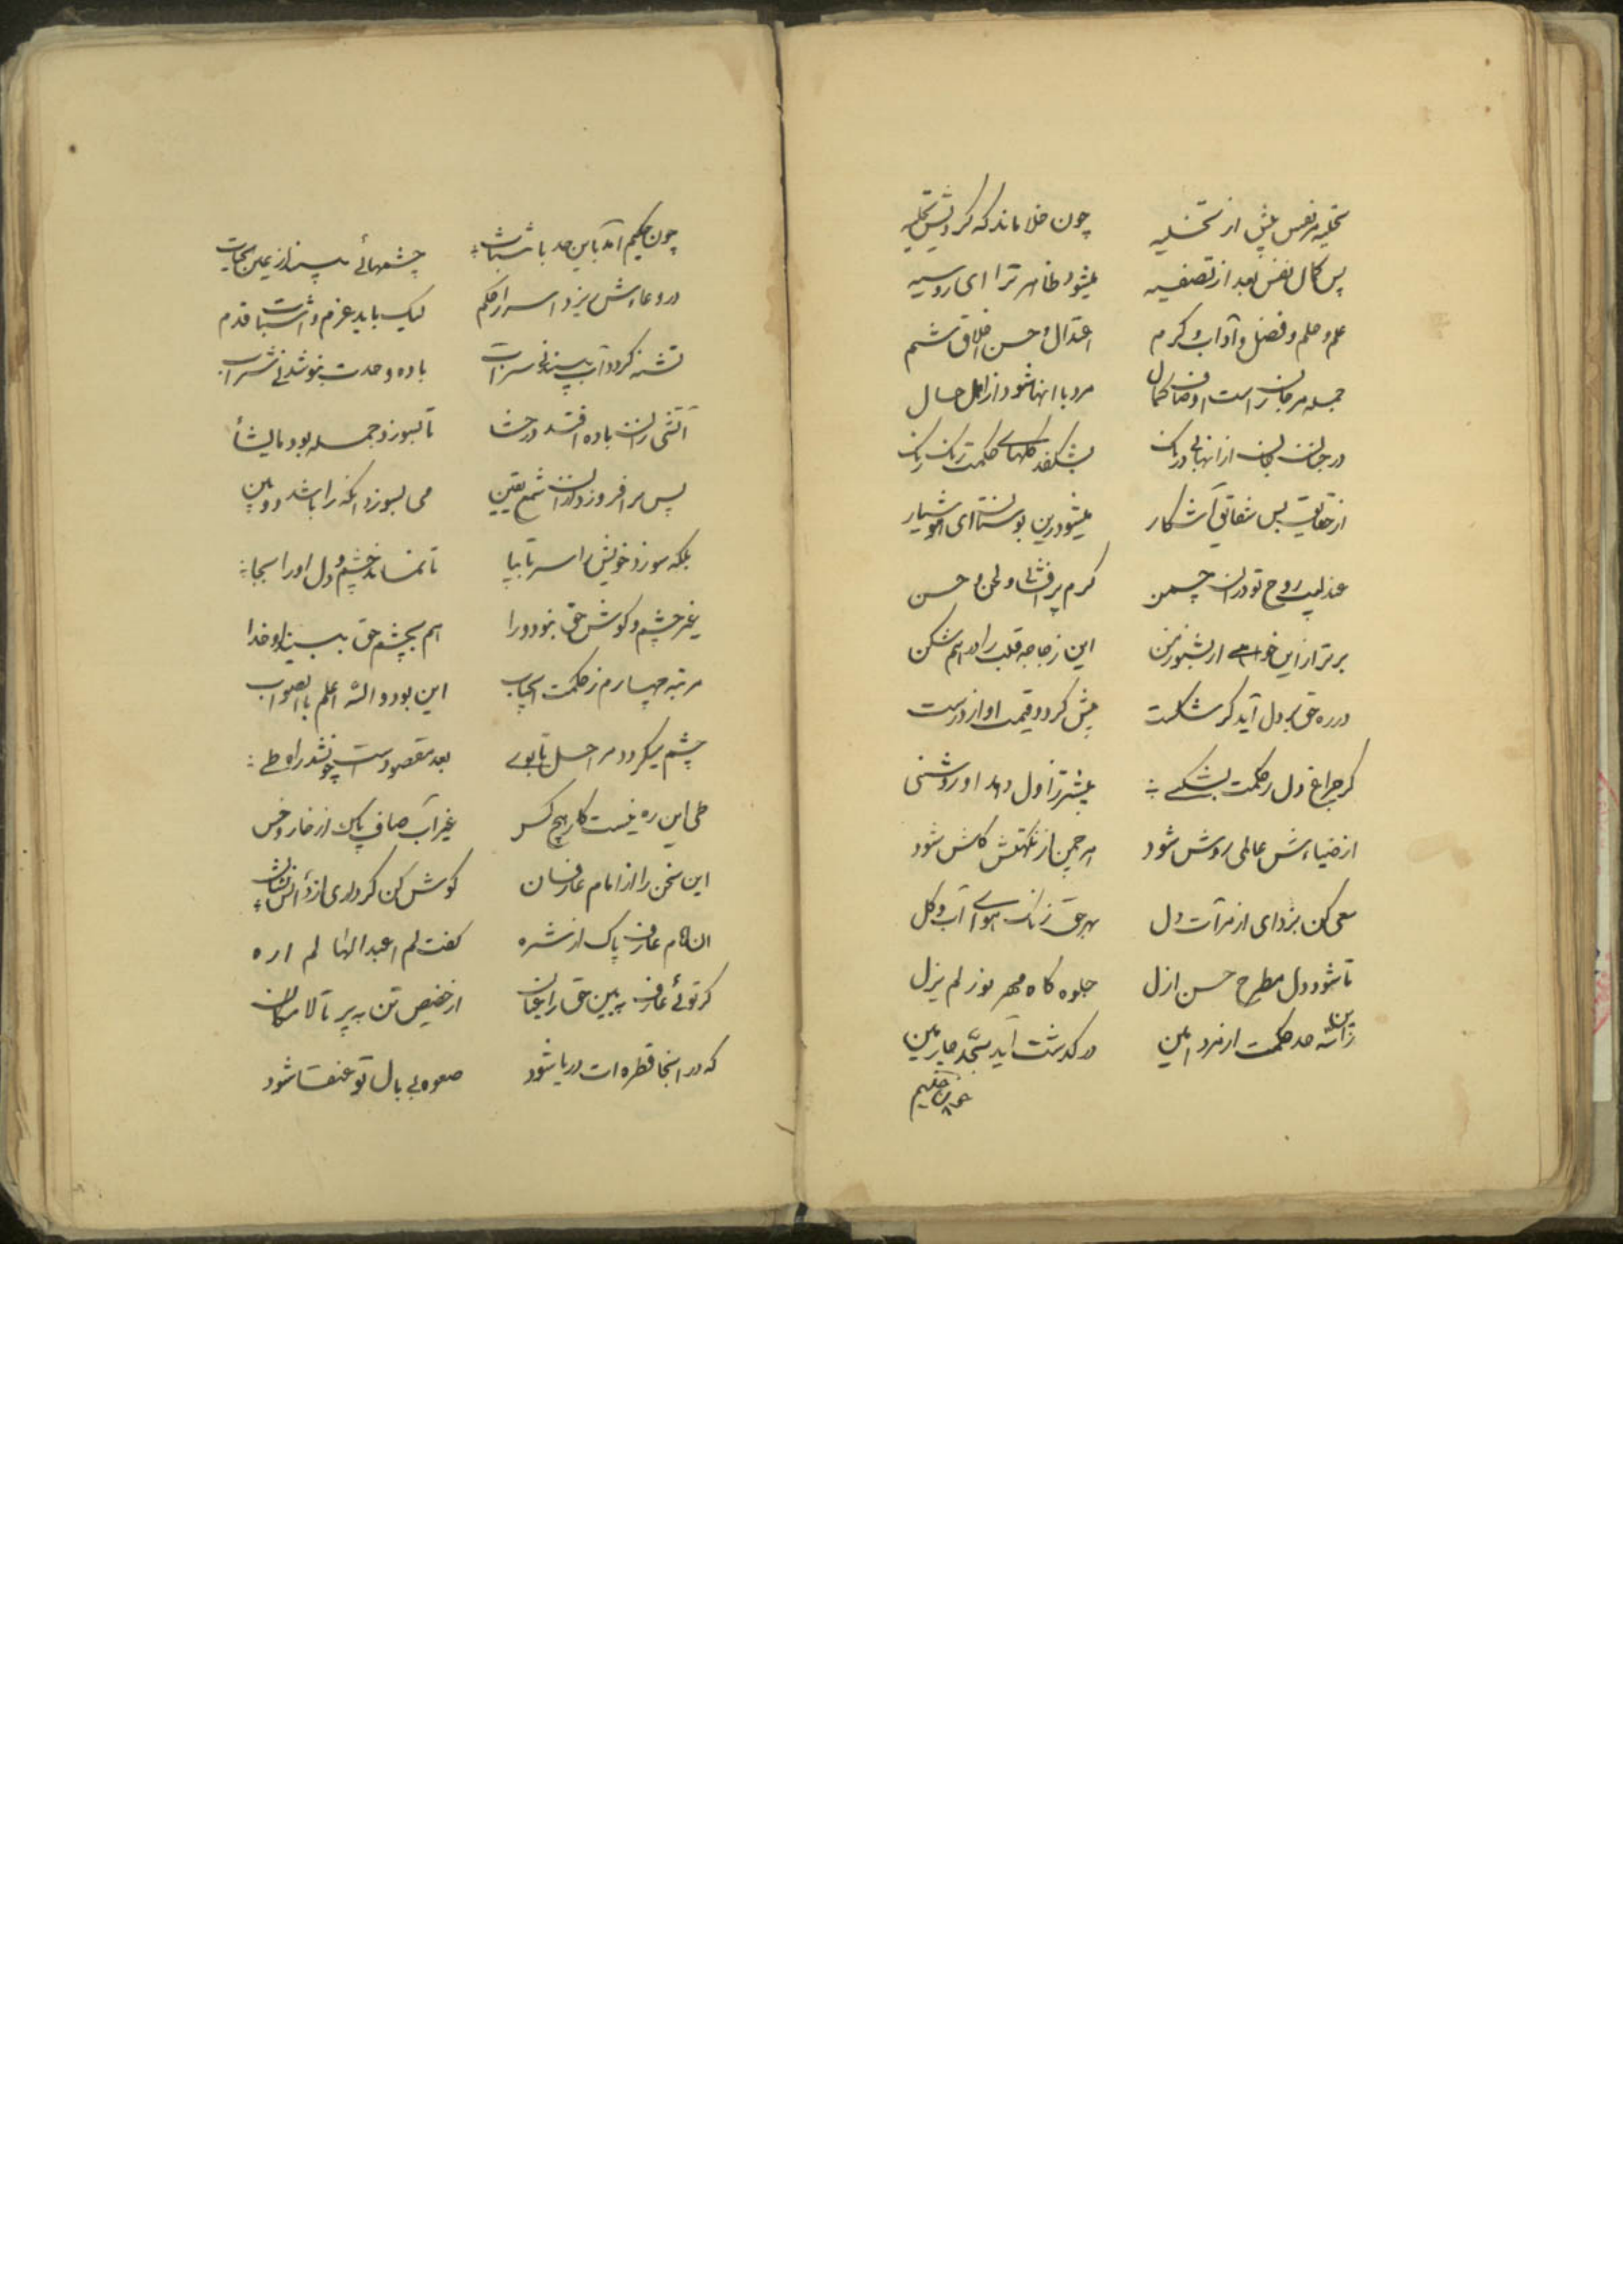 تخلیه مر نفس پیش از تحلیه چون خلا ماند که کردیش تخلیه
پس کمال نفس بعد از تصفیه میشود ظاهر ترا ای روسیه
علم و حلم و فضل و آداب و کرم اعتدال و حسن اخلاق شیم
جمله مر جان راست اوصاف کمال مرد با انها شود از اهل حال
در جنان جان از انها بی درنک بشکفد کلهای حکمت رنک رنک
از حقایق بس شقایق آشکار میشود درین بوستان ای هوشیار
عندلیب روح تو دران چمن کرم پرافشانی و لحن حسن
برتر از این خواهی ار بشنو ز من این زجاجه قلب را در هم شکن
در ره حق بر دل آید کر شکست بیش کردد قیمت او از درست
کر چراغ دل ز حکمت بشکنی بیشتر از اول دهد او روشنی
از ضیاءش عالمی روشن شود هر چمن از نکهتش کلشن شود
سعی کن بزدای از مرآت دل بهر حق زنک هوای آب و کل
تا شود دل مطرح حسن ازل جلوه کاه مهر نور لم یزل
زین سه حد حکمت ار مرد امین در کذشت آید بحد چارمین
چون حکیم
چون حکیم آمد باین حد با ثبات چشمهائی بیند از عین حیات
در دعاءش ریزد اسرار حکم لیک باید عزم و اثبات قدم
تشنه کردد آب بیند نی سراب باده وحدت بنوشد نی شراب
آتشی زان باده افتد در حشا تا بسوزد جمله بود مایشأ
پس بر افروزد ازان شمع یقین می بسوزد انکه را باشد دو بین
بلکه سوزد خویش را سر تا بپا تا نماند چشم و دل او را بجا
غیر چشم و کوش حق نبود ورا هم بچشم حق ببیند او خدا
مرتبه چهارم ز حکمت ایجناب این بود والله اعلم بالصواب
چشم میکردد مراحل تا بوی بعد مقصود است چون شد راه طی
طی این ره نیست کار هیچ کس غیر آب صاف پاک از خار و خس
این سخن را از امام عارفان کوش کن کر داری ازو نشان
ان امام عارف پاک از شره کفت لم اعبد الها لم اره
کر توئی عارف ببین حق را عیان از خضیض تن بپر تا لامکان
که در انجا قطره ات دریا شود صعوه بی بال تو عنقا شود